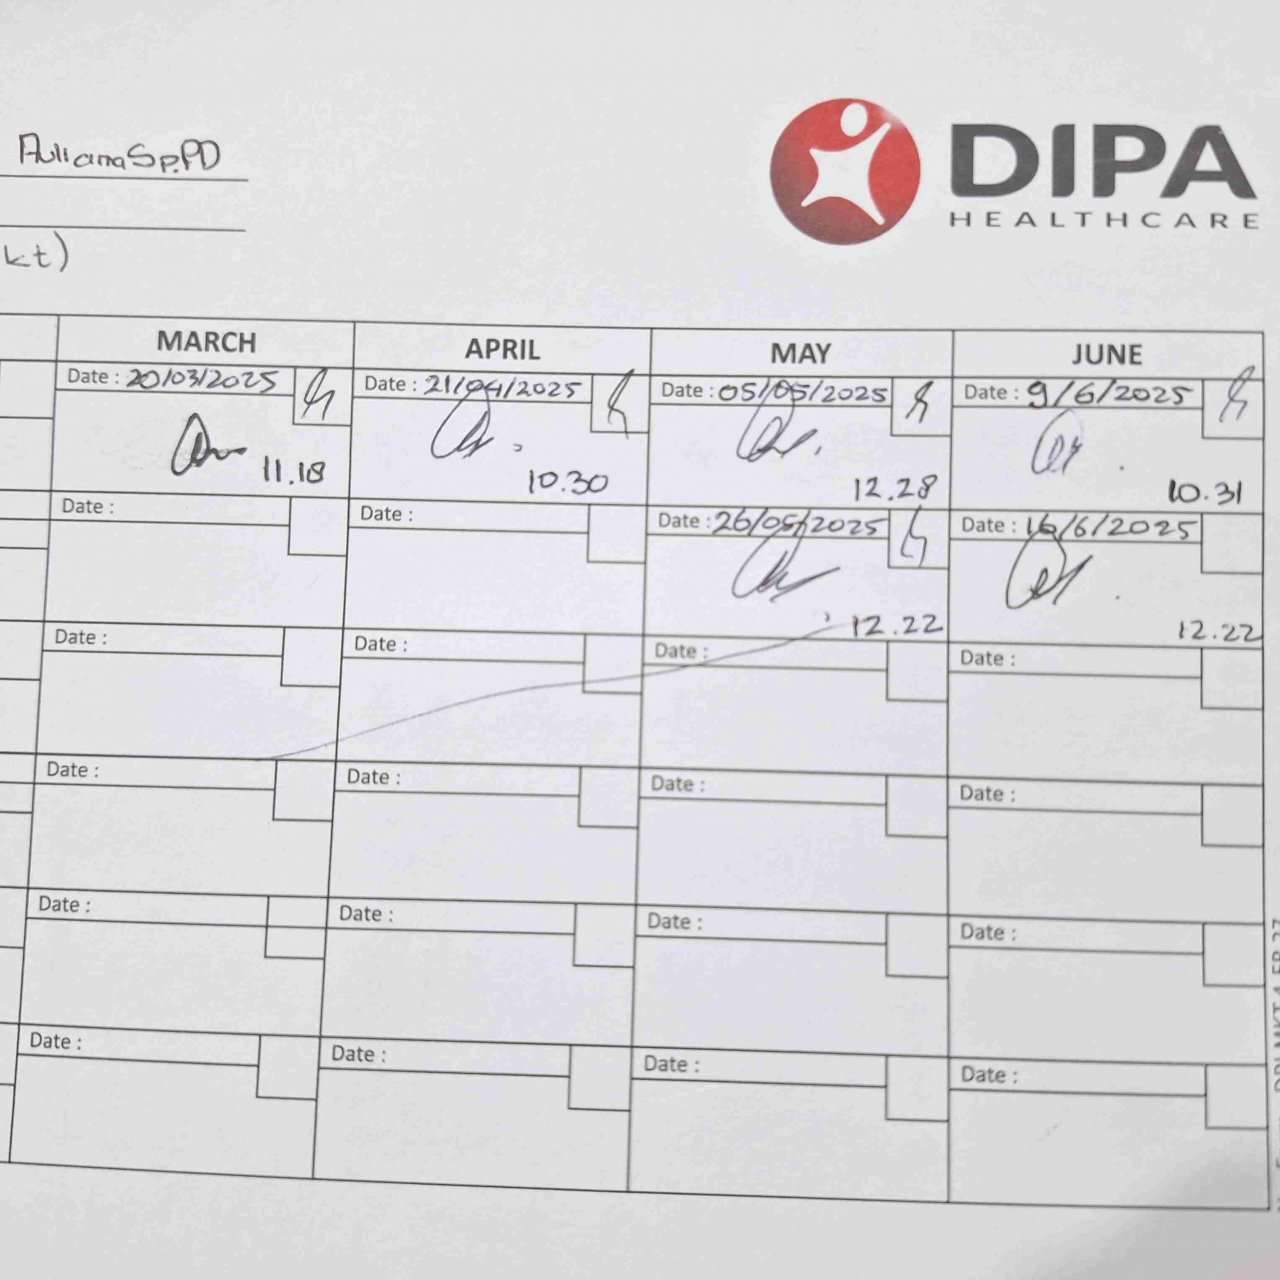 AulianaSp.PD
DIPA
HEALTHCARE
kt)
MARCH APRIL MAY JUNE
Date : 20/03/2025 Date : 21/04/2025 Date : 05/05/2025 Date : 9/6/2025
11.18 10.30 12.28 10.31
Date : Date : Date : 26/05/2025 Date : 16/6/2025
12.22 12.22
Date : Date : Date : Date :
Date : Date : Date : Date :
Date : Date : Date : Date :
Date : Date : Date : Date :